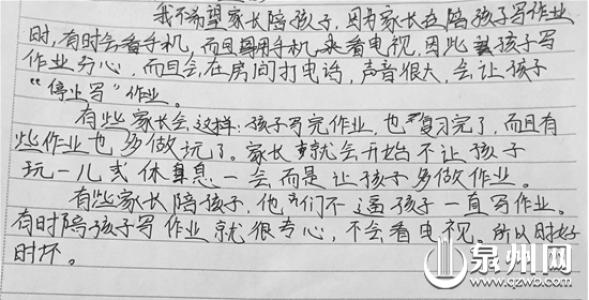 我不希望家长陪孩子，因为家长在陪孩子写作业
时，有时会看手机，而且用手机来看电视，因此孩子写
作业分心，而且会在房间打电话，声音很大，会让孩子
“停止写”作业。
有些家长会这样：孩子写完作业，也复习完了，而且有
些作业也多做玩了。家长就会开始不让孩子
玩一儿或休息一会而是让孩子多做作业。
有些家长陪孩子，他们不逼孩子一直写作业。
有时陪孩子写作业就很专心，不会看电视。所以时好
时坏。
泉州网